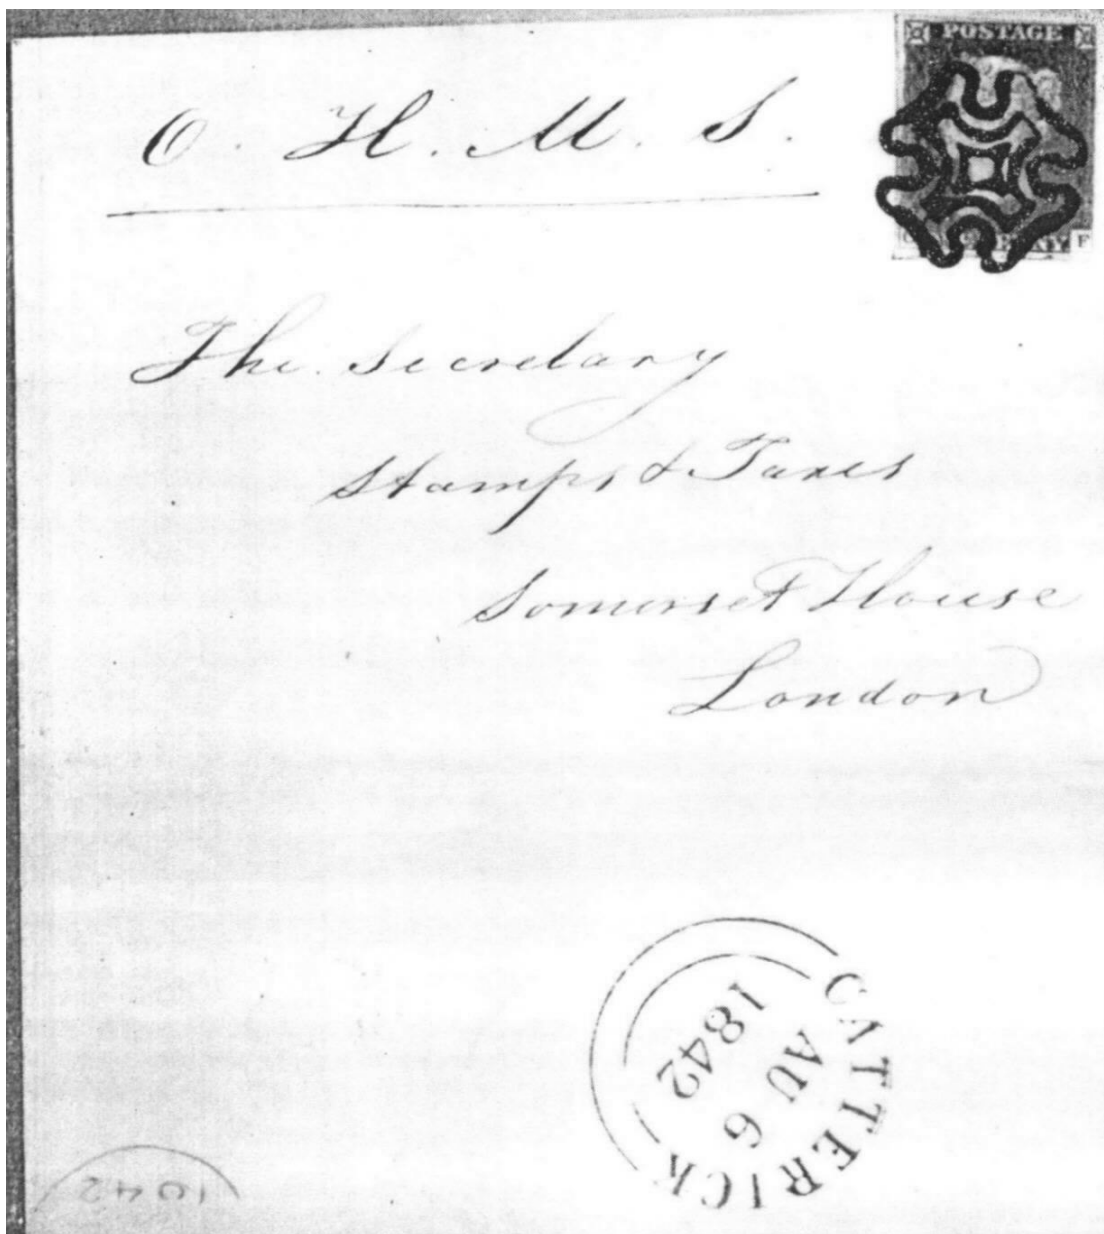 POSTAGE
O H. M. S.
The Secretary
Stamps & Taxes
Somerset House
London
CATTERICK
AU 6
1842
F